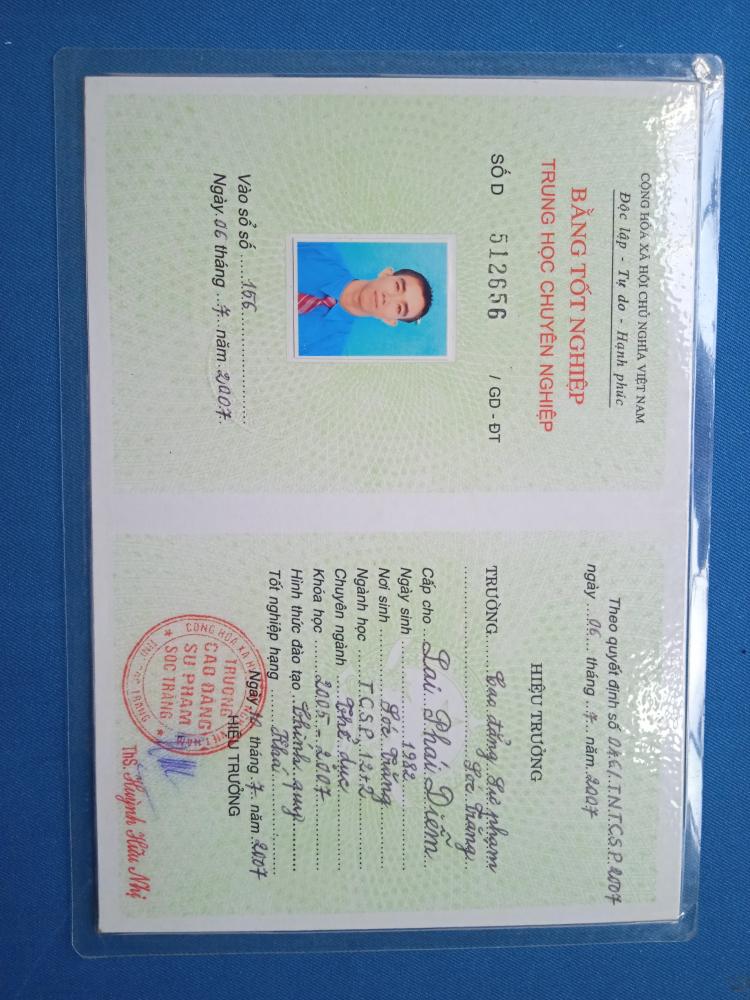 CỘNG HÒA XÃ HỘI CHỦ NGHĨA VIỆT NAM
Độc lập - Tự do - Hạnh phúc
BẰNG TỐT NGHIỆP
TRUNG HỌC CHUYÊN NGHIỆP
SỐ D 512656 / GD - ĐT
Vào sổ số ......156......................
Ngày.06 tháng ..7...năm.2007.
Theo quyết định số 0161.T.N.T.C.S.P.2007
ngày ...06.... tháng ..7.. năm.2007
HIỆU TRƯỞNG
TRƯỜNG..... Cao đẳng Sư phạm
Sóc Trăng
Cấp cho ...Lai Phái Diễm....
Ngày sinh ........1982........
Nơi sinh ......Sóc Trăng......
Ngành học ....T.C.S.P. 12+2
Chuyên ngành ....Thể dục....
Khóa học ......2005 - 2007
Hình thức đào tạo .Chính quy
Tốt nghiệp hạng ......Khá......
Ngày 10 tháng .7. năm 2007
HIỆU TRƯỞNG
TRƯỜNG
CAO ĐẲNG
SƯ PHẠM
SÓC TRĂNG
ThS. Huỳnh Hữu Nhị